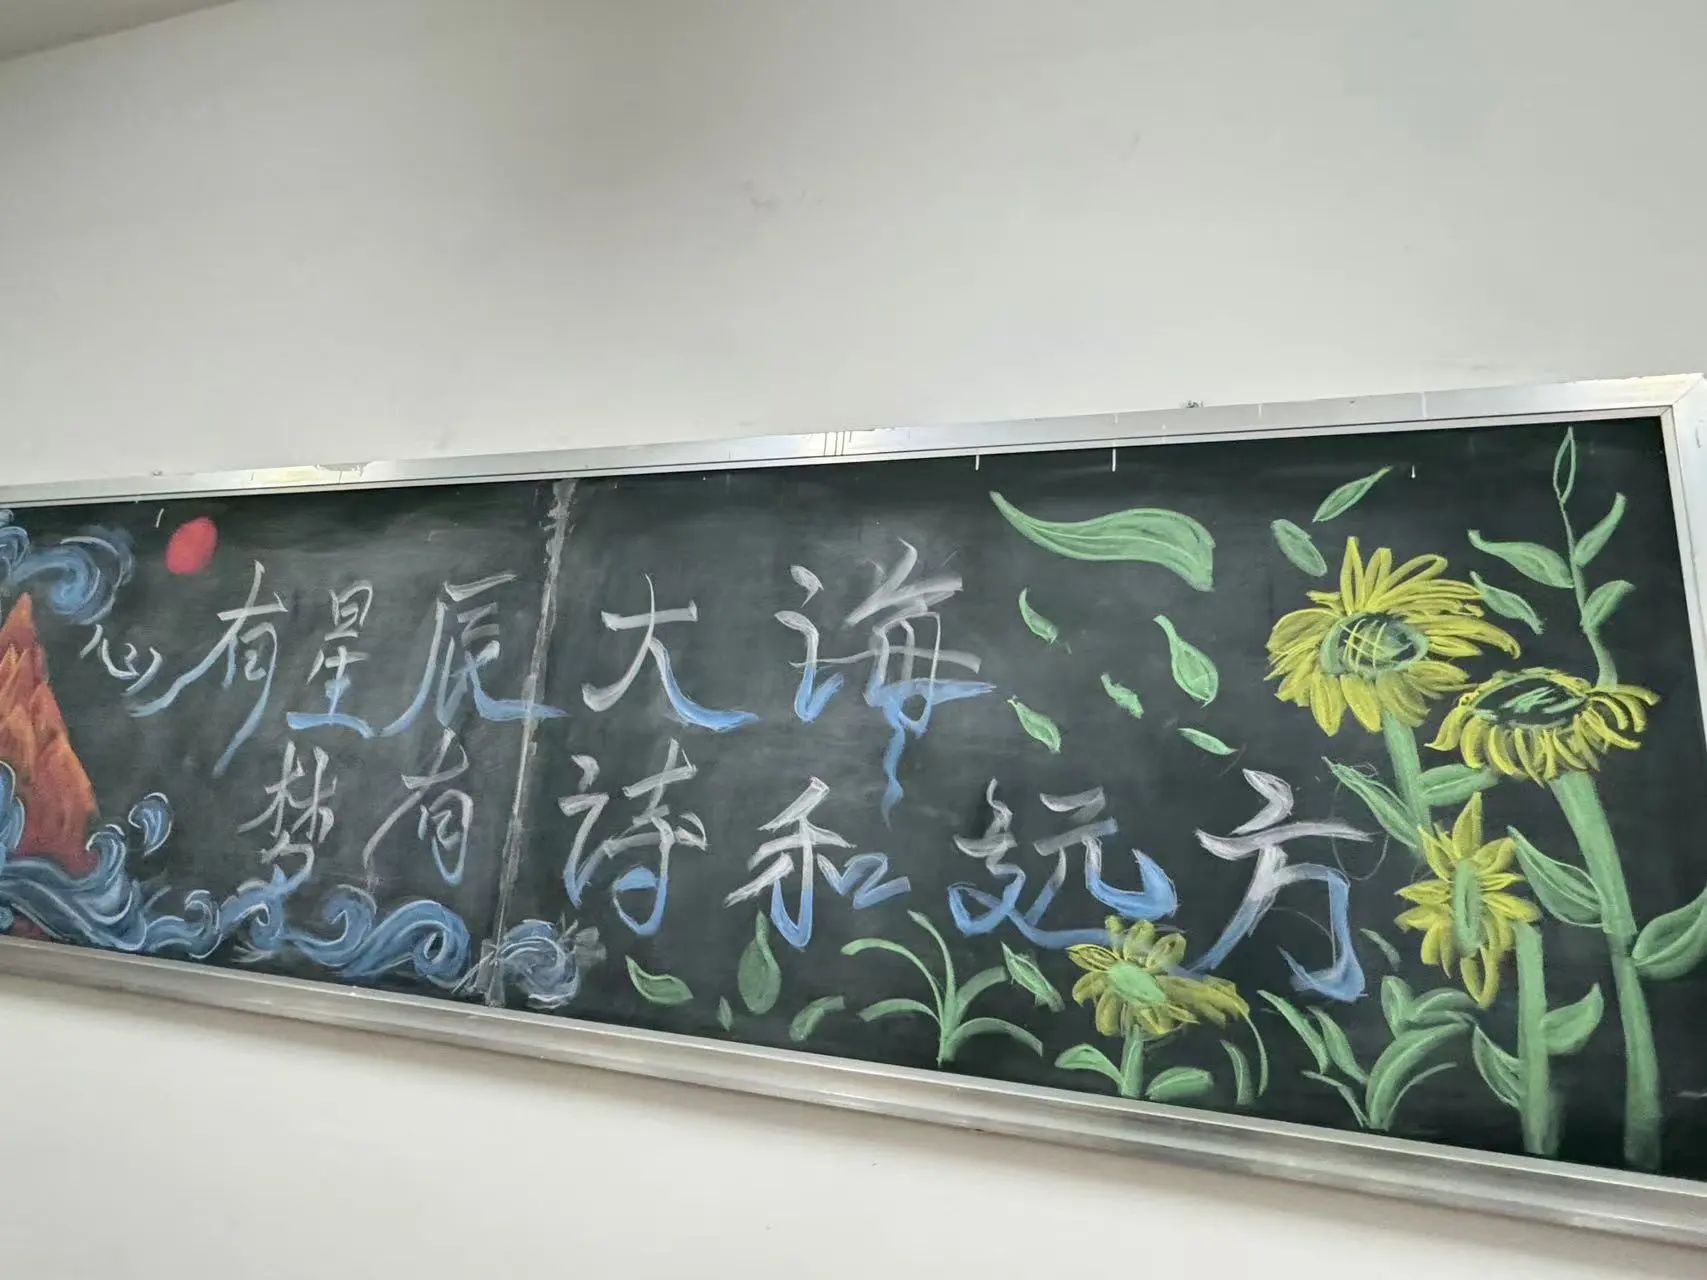 心有星辰大海
梦有诗和远方